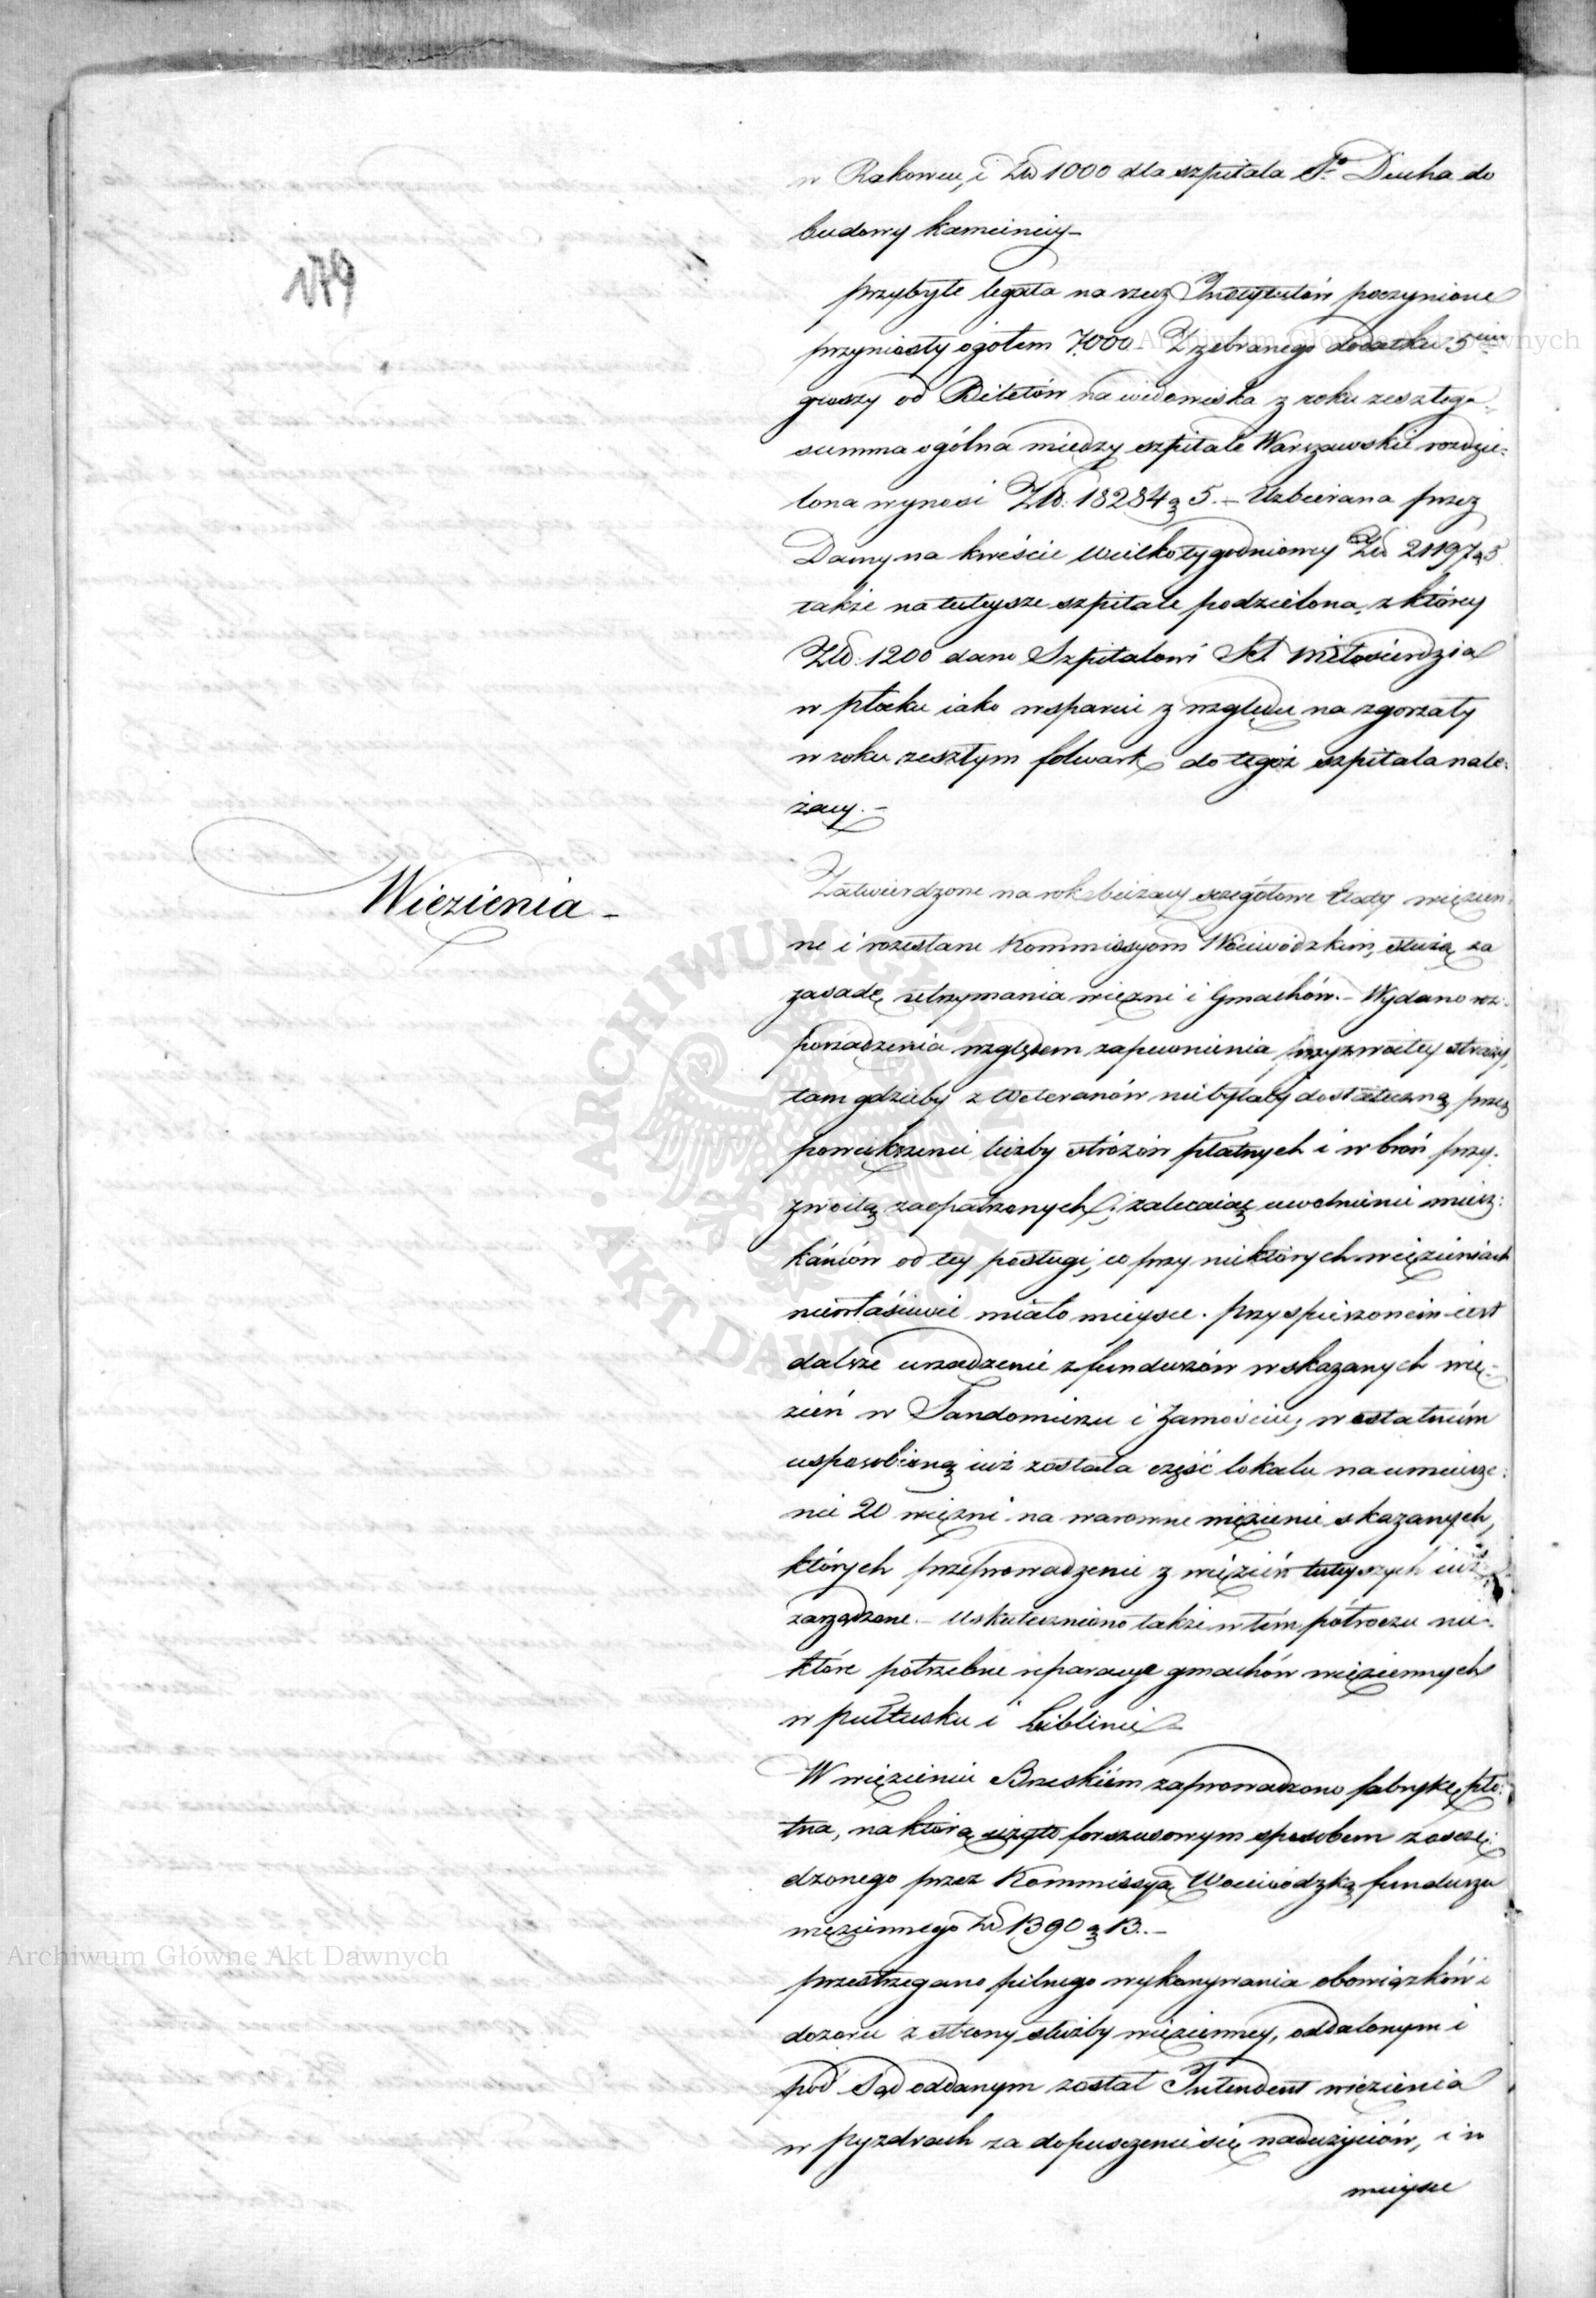 w Rakowcu, i Złp 1000 dla szpitala Sgo Ducha do
budowy kamienicy –
179
przybyłe legata na rzecz Instytutów poczynione
przyniosły ogółem 7.000 – Z zebranego dodatku 5ciu
groszy od Biletów na widowiska z roku zeszłego
summa ogólna między szpitale Warszawskie rozdzie-
lona wynosi Złp: 18284 g 5. – Uzbierana przez
Damy na kweście wielkotygodniowey Złp 21197 g 5
także na tuteysze szpitale podzielona, z którey
Złp: 1200 dano Szpitalowi St. Miłosierdzia
w płocku iako wsparcie z względu na zgorzały
w roku zeszłym folwark do tegoż szpitala nale-
żący. –
Wiezienia –
Zatwierdzone na rok bieżący szczegółowe Etaty więzien-
ne i rozesłane Kommissyom Woiewódzkim, służą za
zasadę utrzymania więzni i Gmachów. – Wydano roz-
porządzenia względem zapewnienia przyzwoitey straży,
tam gdzieby z Weteranów niebyłaby dostateczną przez
powiększenie liczby stróżów płatnych i w broń przy-
zwoitą zaopatrzonych; zalecaiąc uwolnienie miesz-
kańców od tey posługi, co przy niektórych więzieniach
niewłaściwie miało mieysce. przyspieszonem iest
dalsze urządzenie z funduszów wskazanych wię-
zień w Sandomierzu i Zamościu; w ostatnim
usposobioną iuż została część lokalu na umieszcze-
nie 20 więzni na warowne więzienie skazanych,
których przeprowadzenie z więzień tuteyszych iuż
zarządzone. – Uskuteczniono także w tém półroczu nie-
które potrzebne reparacye gmachów więziennych
w pułtusku i Lublinie
W więzieniu Brzeskiém zaprowadzono fabrykę płó-
tna, na którą użyto forszusowym sposobem zaoszczę-
dzonego przez Kommissyą Woiewódzką funduszu
więziennego Zł 1390 g 13. –
przestrzegano pilnego wykonywania obowiązków i
dozoru z strony służby więzienney, oddalonym i
pod Sąd oddanym został Intendent więzienia
w pyzdrach za dopuszczenie się nadużyciów, i w
mieysce
Archiwum Główne Akt Dawnych
Archiwum Główne Akt Dawnych
ARCHIWUM GŁÓWNE AKT DAWNYCH